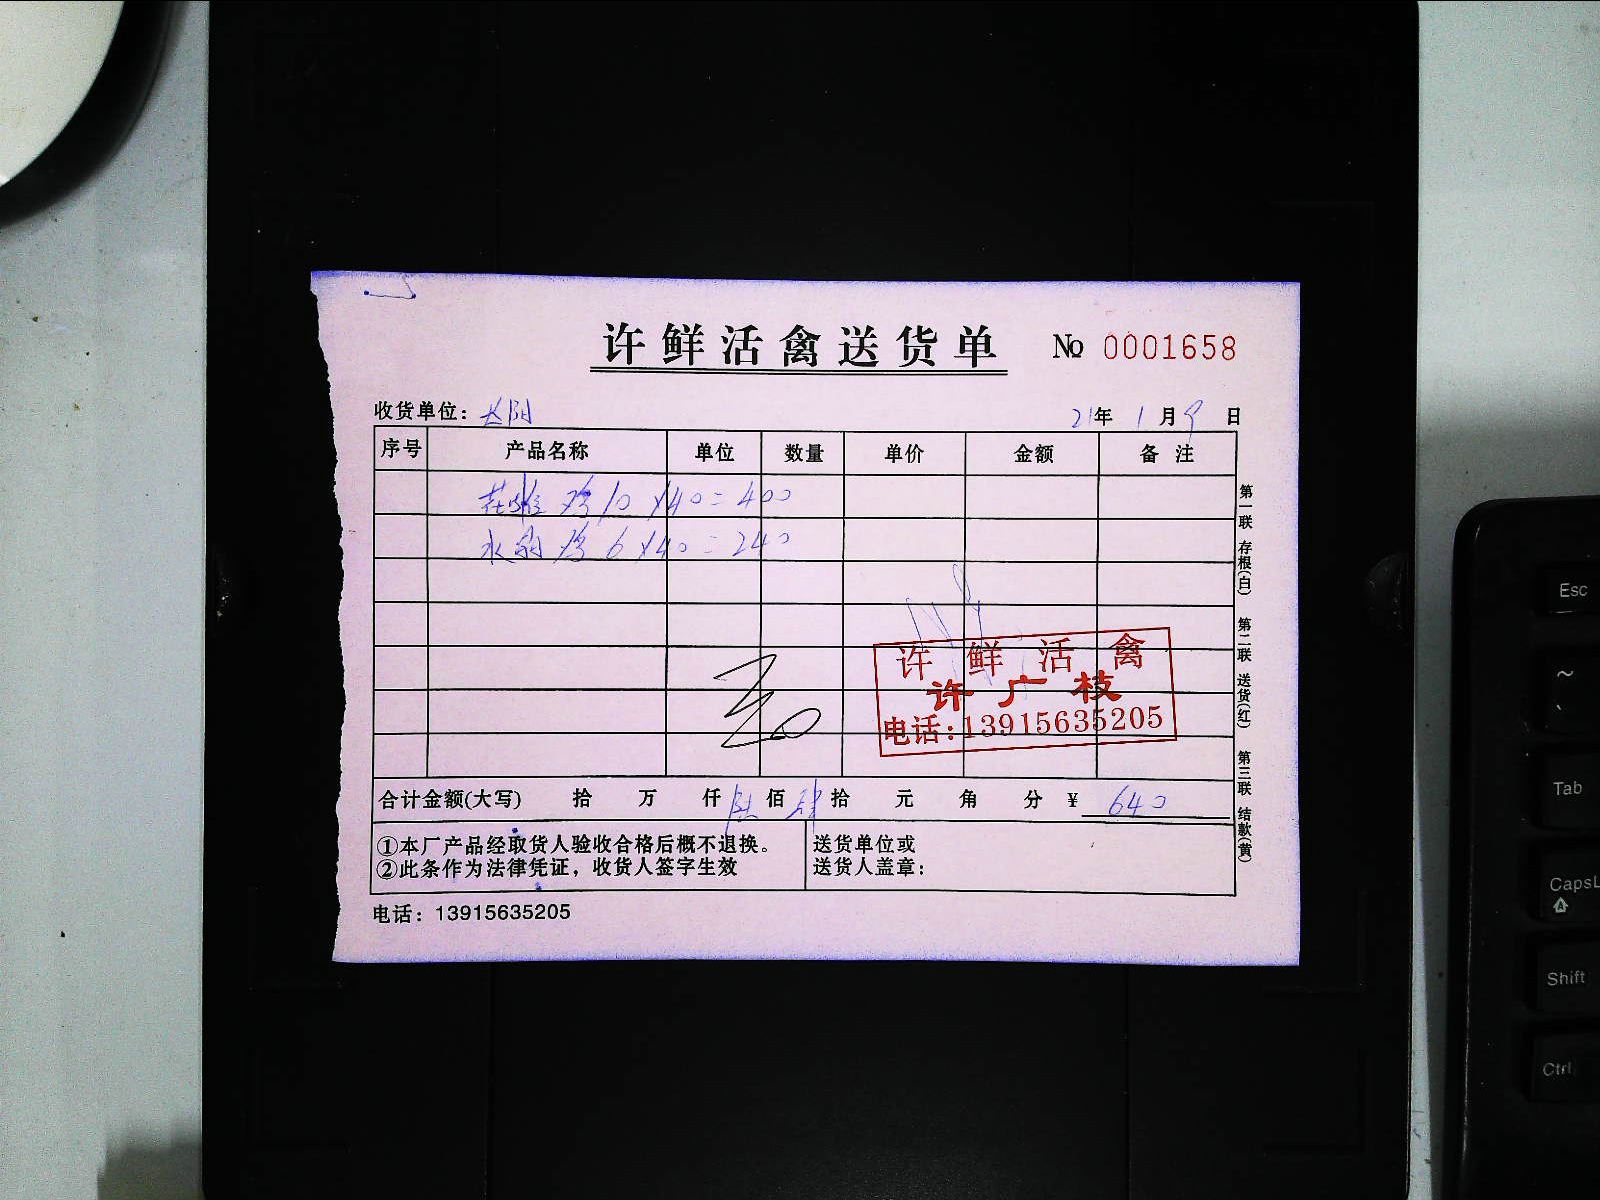 许鲜活禽送货单 № 0001658
收货单位： 21年 1月9日
序号 产品名称 单位 数量 单价 金额 备注
鸡 10×40=400
鸡 6×40=240
许鲜活禽
许广枝
电话：13915635205
合计金额(大写) 拾 万 仟 陆佰 肆拾 元 角 分 ¥ 640
①本厂产品经取货人验收合格后概不退换。
②此条作为法律凭证，收货人签字生效
送货单位或
送货人盖章：
电话：13915635205
第一联 存根(白) 第二联 送货(红) 第三联 结款(黄)
Esc
~
Tab
CapsL
Shift
Ctrl